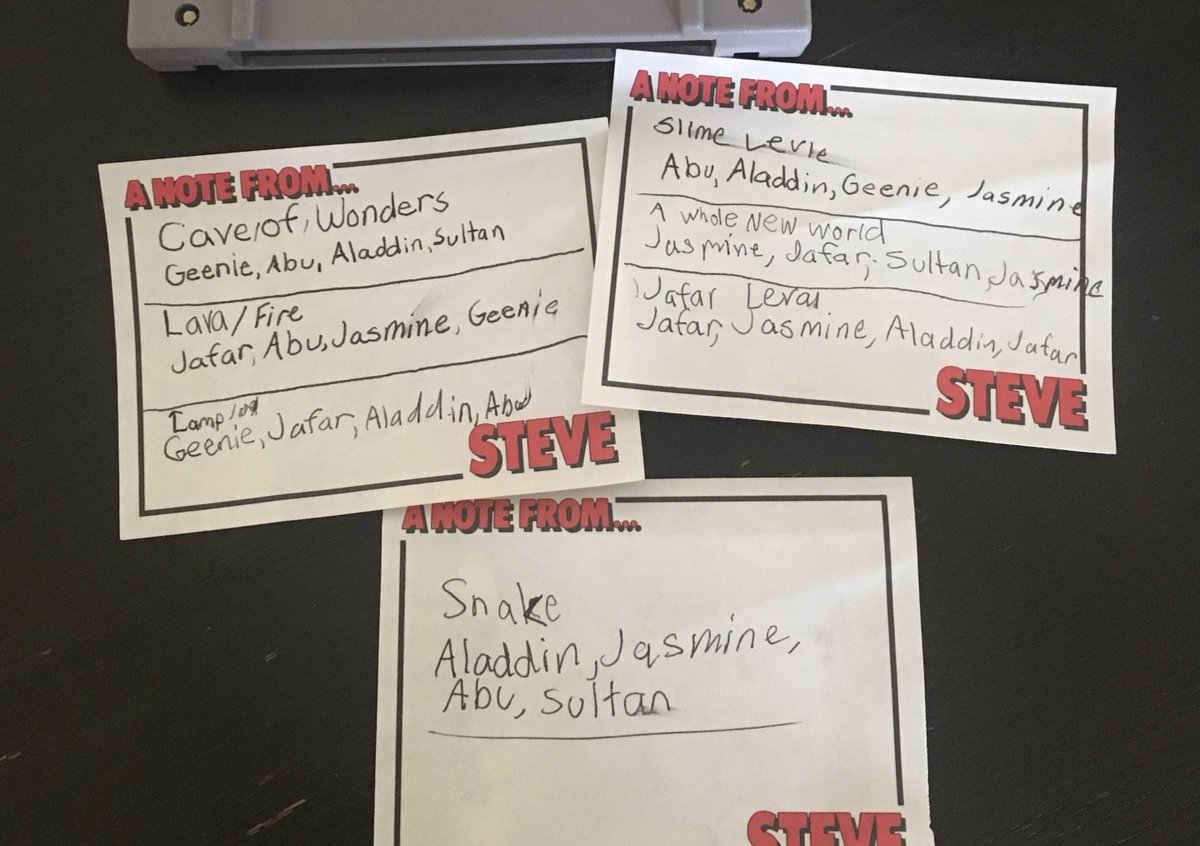 A NOTE FROM...
Cave/of/Wonders
Geenie, Abu, Aladdin, Sultan
Lava/Fire
Jafar, Abu, Jasmine, Geenie
Geenie, Jafar, Aladdin, Abu
STEVE
A NOTE FROM...
Slime Levle
Abu, Aladdin, Geenie, Jasmine
A whole New world
Jasmine, Jafar, Sultan, Jasmine
Jafar
Jafar, Jasmine, Aladdin, Jafar
STEVE
A NOTE FROM...
Snake
Aladdin, Jasmine,
Abu, Sultan
STEVE